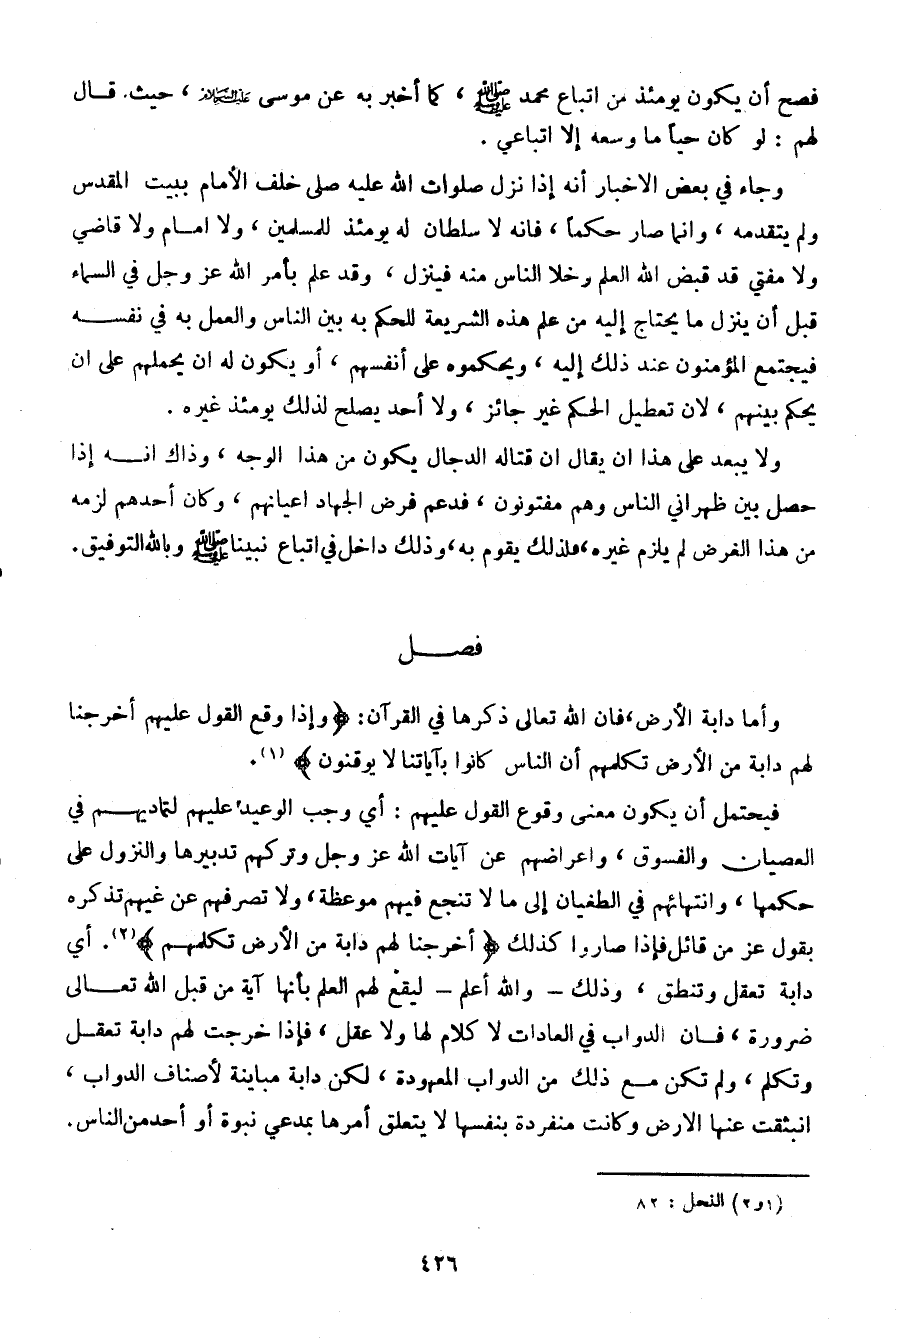 فصح أن يكون يومئذ من اتباع محمد ﷺ ، كما أخبر به عن موسى عليه السلام ، حيث. قال
لهم : لو كان حياً ما وسعه إلا اتباعي .
وجاء في بعض الاخبار أنه إذا نزل صلوات الله عليه صلى خلف الأمام ببيت المقدس
ولم يتقدمه ، وانما صار حكماً ، فانه لا سلطان له يومئذ للمسلمين ، ولا امام ولا قاضي
ولا مفتي قد قبض الله العلم وخلا الناس منه فينزل ، وقد علم بأمر الله عز وجل في السماء
قبل أن ينزل ما يحتاج إليه من علم هذه الشريعة للحكم به بين الناس والعمل به في نفسه
فيجتمع المؤمنون عند ذلك إليه ، ويحكموه على أنفسهم ، أو يكون له ان يحملهم على ان
يحكم بينهم ، لان تعطيل الحكم غير جائز ، ولا أحد يصلح لذلك يومئذ غيره .
ولا يبعد على هذا ان يقال ان قتاله الدجال يكون من هذا الوجه ، وذاك انه إذا
حصل بين ظهراني الناس وهم مفتونون ، فدعم فرض الجهاد اعيانهم ، وكان أحدهم لزمه
من هذا الفرض لم يلزم غيره ، فلذلك يقوم به ، وذلك داخل في اتباع نبينا ﷺ وبالله التوفيق.
فصل
وأما دابة الأرض ، فان الله تعالى ذكرها في القرآن : ﴿ وإذا وقع القول عليهم أخرجنا
لهم دابة من الأرض تكلمهم أن الناس كانوا بآياتنا لا يوقنون ﴾ (١).
فيحتمل أن يكون معنى وقوع القول عليهم : أي وجب الوعيد عليهم لتماديهم في
العصيان والفسوق ، واعراضهم عن آيات الله عز وجل وتركهم تدبيرها والنزول على
حكمها ، وانتهائهم في الطغيان إلى ما لا تنجع فيهم موعظة ، ولا تصرفهم عن غيهم تذكره
بقول عز من قائل فإذا صاروا كذلك ﴿ أخرجنا لهم دابة من الأرض تكلمهم ﴾ (٢). أي
دابة تعقل وتنطق ، وذلك - والله أعلم - ليقع لهم العلم بأنها آية من قبل الله تعالى
ضرورة ، فان الدواب في العادات لا كلام لها ولا عقل ، فإذا خرجت لهم دابة تعقل
وتكلم ، ولم تكن مع ذلك من الدواب المعهودة ، لكن دابة مباينة لأصناف الدواب ،
انبثقت عنها الارض وكانت منفردة بنفسها لا يتعلق أمرها بمدعي نبوة أو أحد من الناس.
(١و٢) النحل : ٨٢
٤٢٦